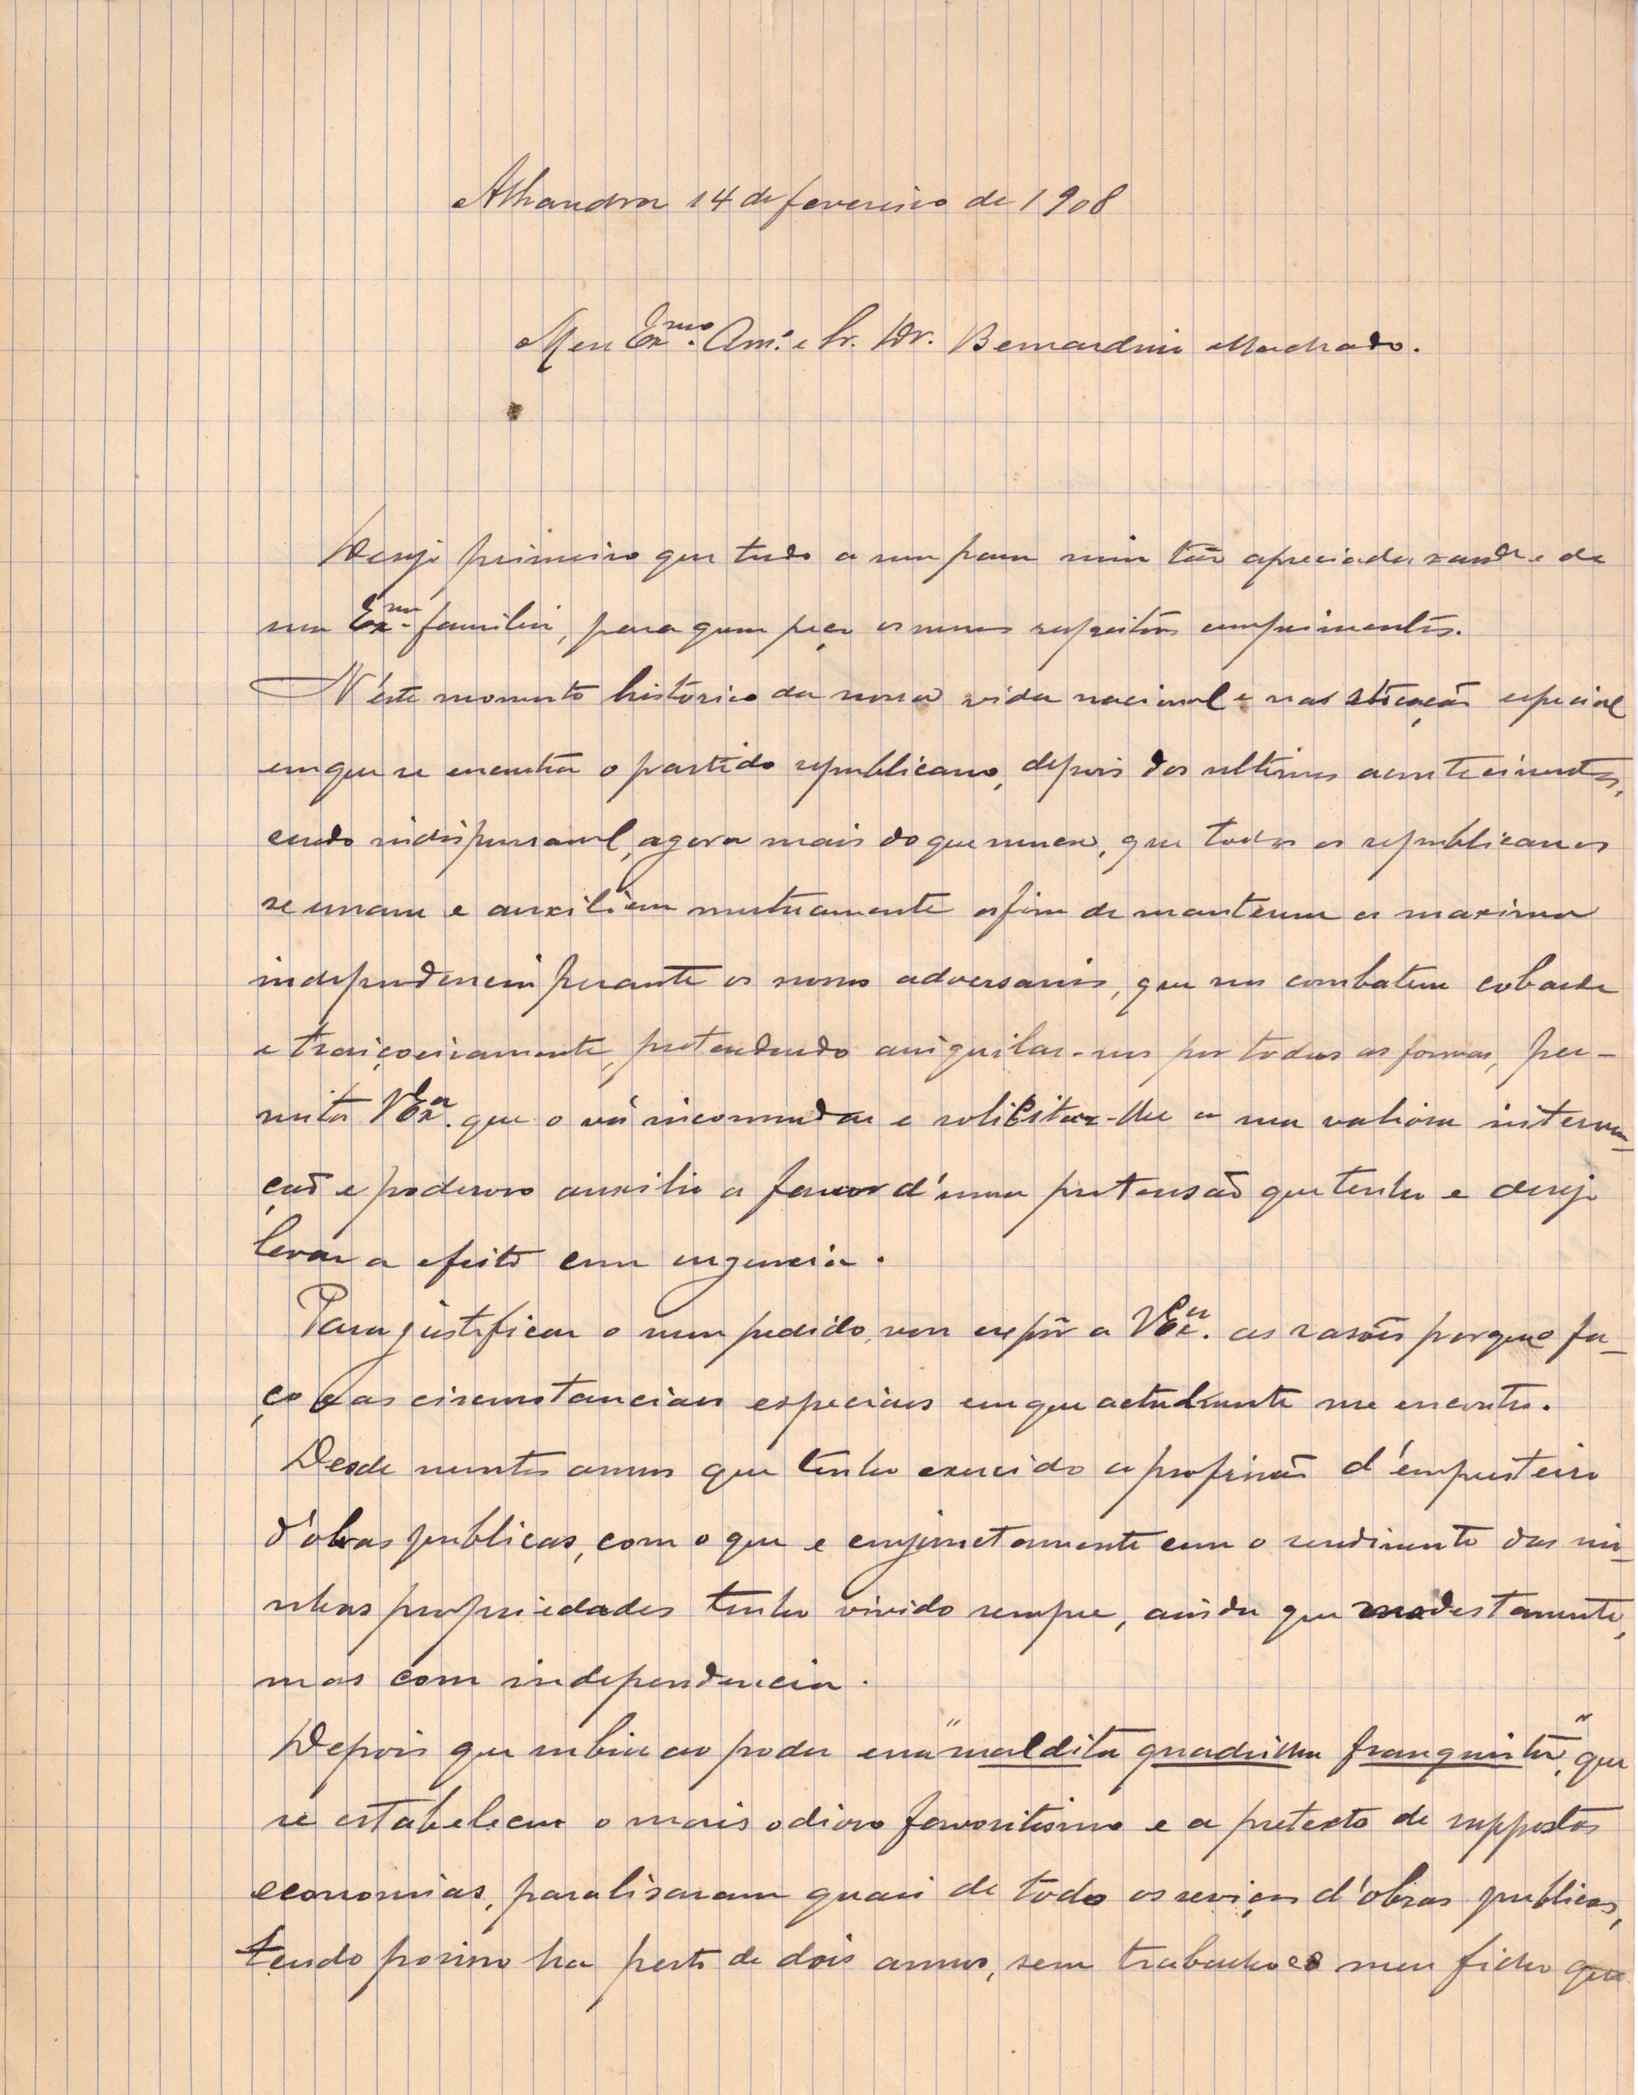 Alhandra 14 de fevereiro de 1908
Meu Ex.mo Am.o e Sr. Dr. Bernardino Machado.
Desejo primeiro que tudo a sua para mim tão apreciada saude e da
sua Ex.ma familia, para quem peço os meus respeitosos cumprimentos.
N'éste momento historico da nossa vida nacional e nas situação especial
em que se encontra o partido republicano, depois dos ultimos acontecimentos,
cendo indispensavel, agora mais do que nunca, que todos os republicanos
se unam e auxiliem mutuamente afim de manterem a maxima
independencia perante os nossos adversarios, que nos combatem cobarde
e traiçoeiramente, pretendendo aniquilar-nos por todas as formas, per-
mita V. Ex.a que o vá incomodar e solicitar-lhe a sua valiosa interven-
ção e poderoso auxilio a favor d'uma pretensão que tenho e desejo
levar a efeito com urgencia.
Para justificar o meu pedido, vou expôr a V. Ex.a as rasões porque o fa-
ço e as circumstancias especiaes em que actualmente me encontro.
Desde muitos annos que tenho exercido a profissão d'émpreiteiro
d'obras publicas, com o que e conjunctamente com o rendimento das mi-
nhas propriedades tenho vivido sempre, ainda que modestamente,
mas com independencia.
Depois que subiu ao poder essa "maldita quadrilha franquista", que
se estabeleceu o mais odioso favoritismo e a pretexto de suppostas
economias, paralisaram quasi de todo os serviços d'obras publicas,
tendo por isso ha perto de dois annos, sem trabalho eo meu filho que